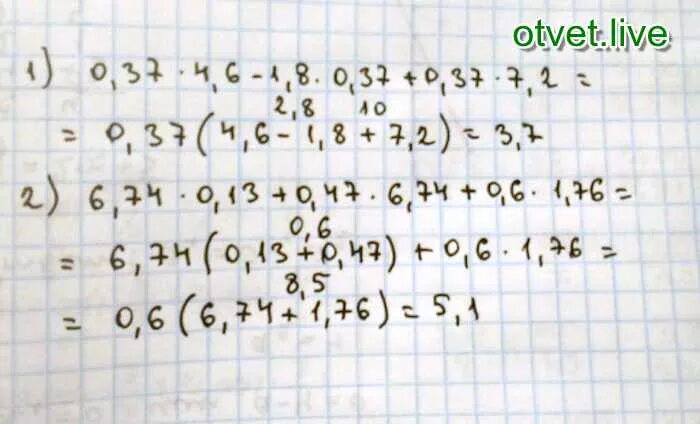 otvet.live
1) 0,37 · 4,6 - 1,8 · 0,37 + 0,37 · 7,2 =
2,8 10
= 0,37 (4,6 - 1,8 + 7,2) = 3,7
2) 6,74 · 0,13 + 0,47 · 6,74 + 0,6 · 1,76 =
0,6
= 6,74 (0,13 + 0,47) + 0,6 · 1,76 =
8,5
= 0,6 (6,74 + 1,76) = 5,1